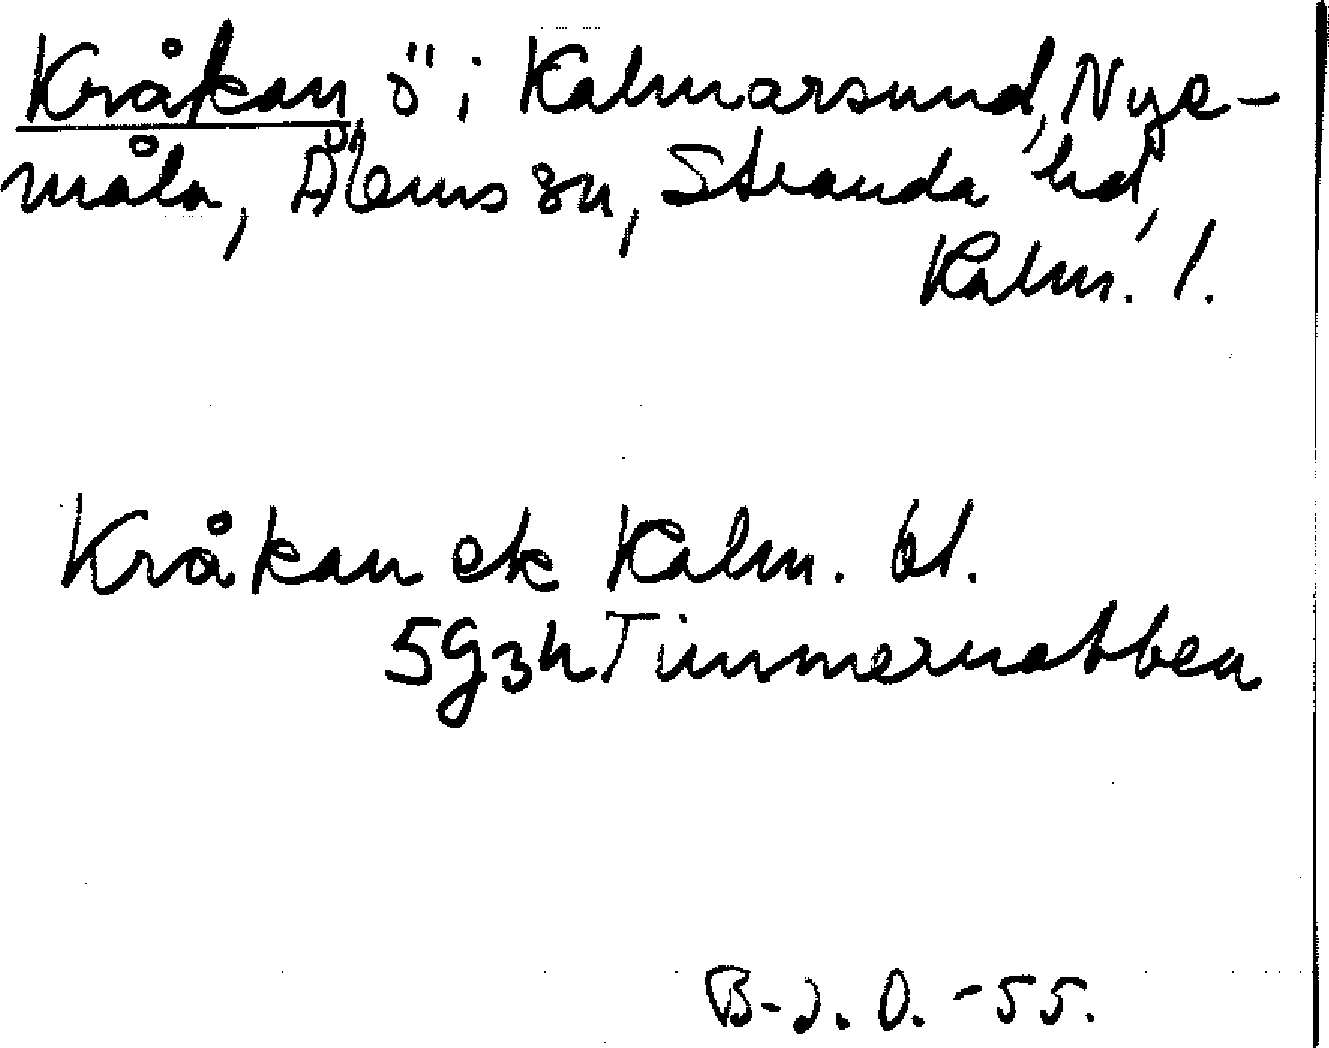 Kråkan, ö i Kalmarsund, Nye-
måla, Ålems sn, Stranda hd,
Kalm. l.
Kråkan ek Kalm. bl.
5g3h Timmernabben
B-J. O. -55.